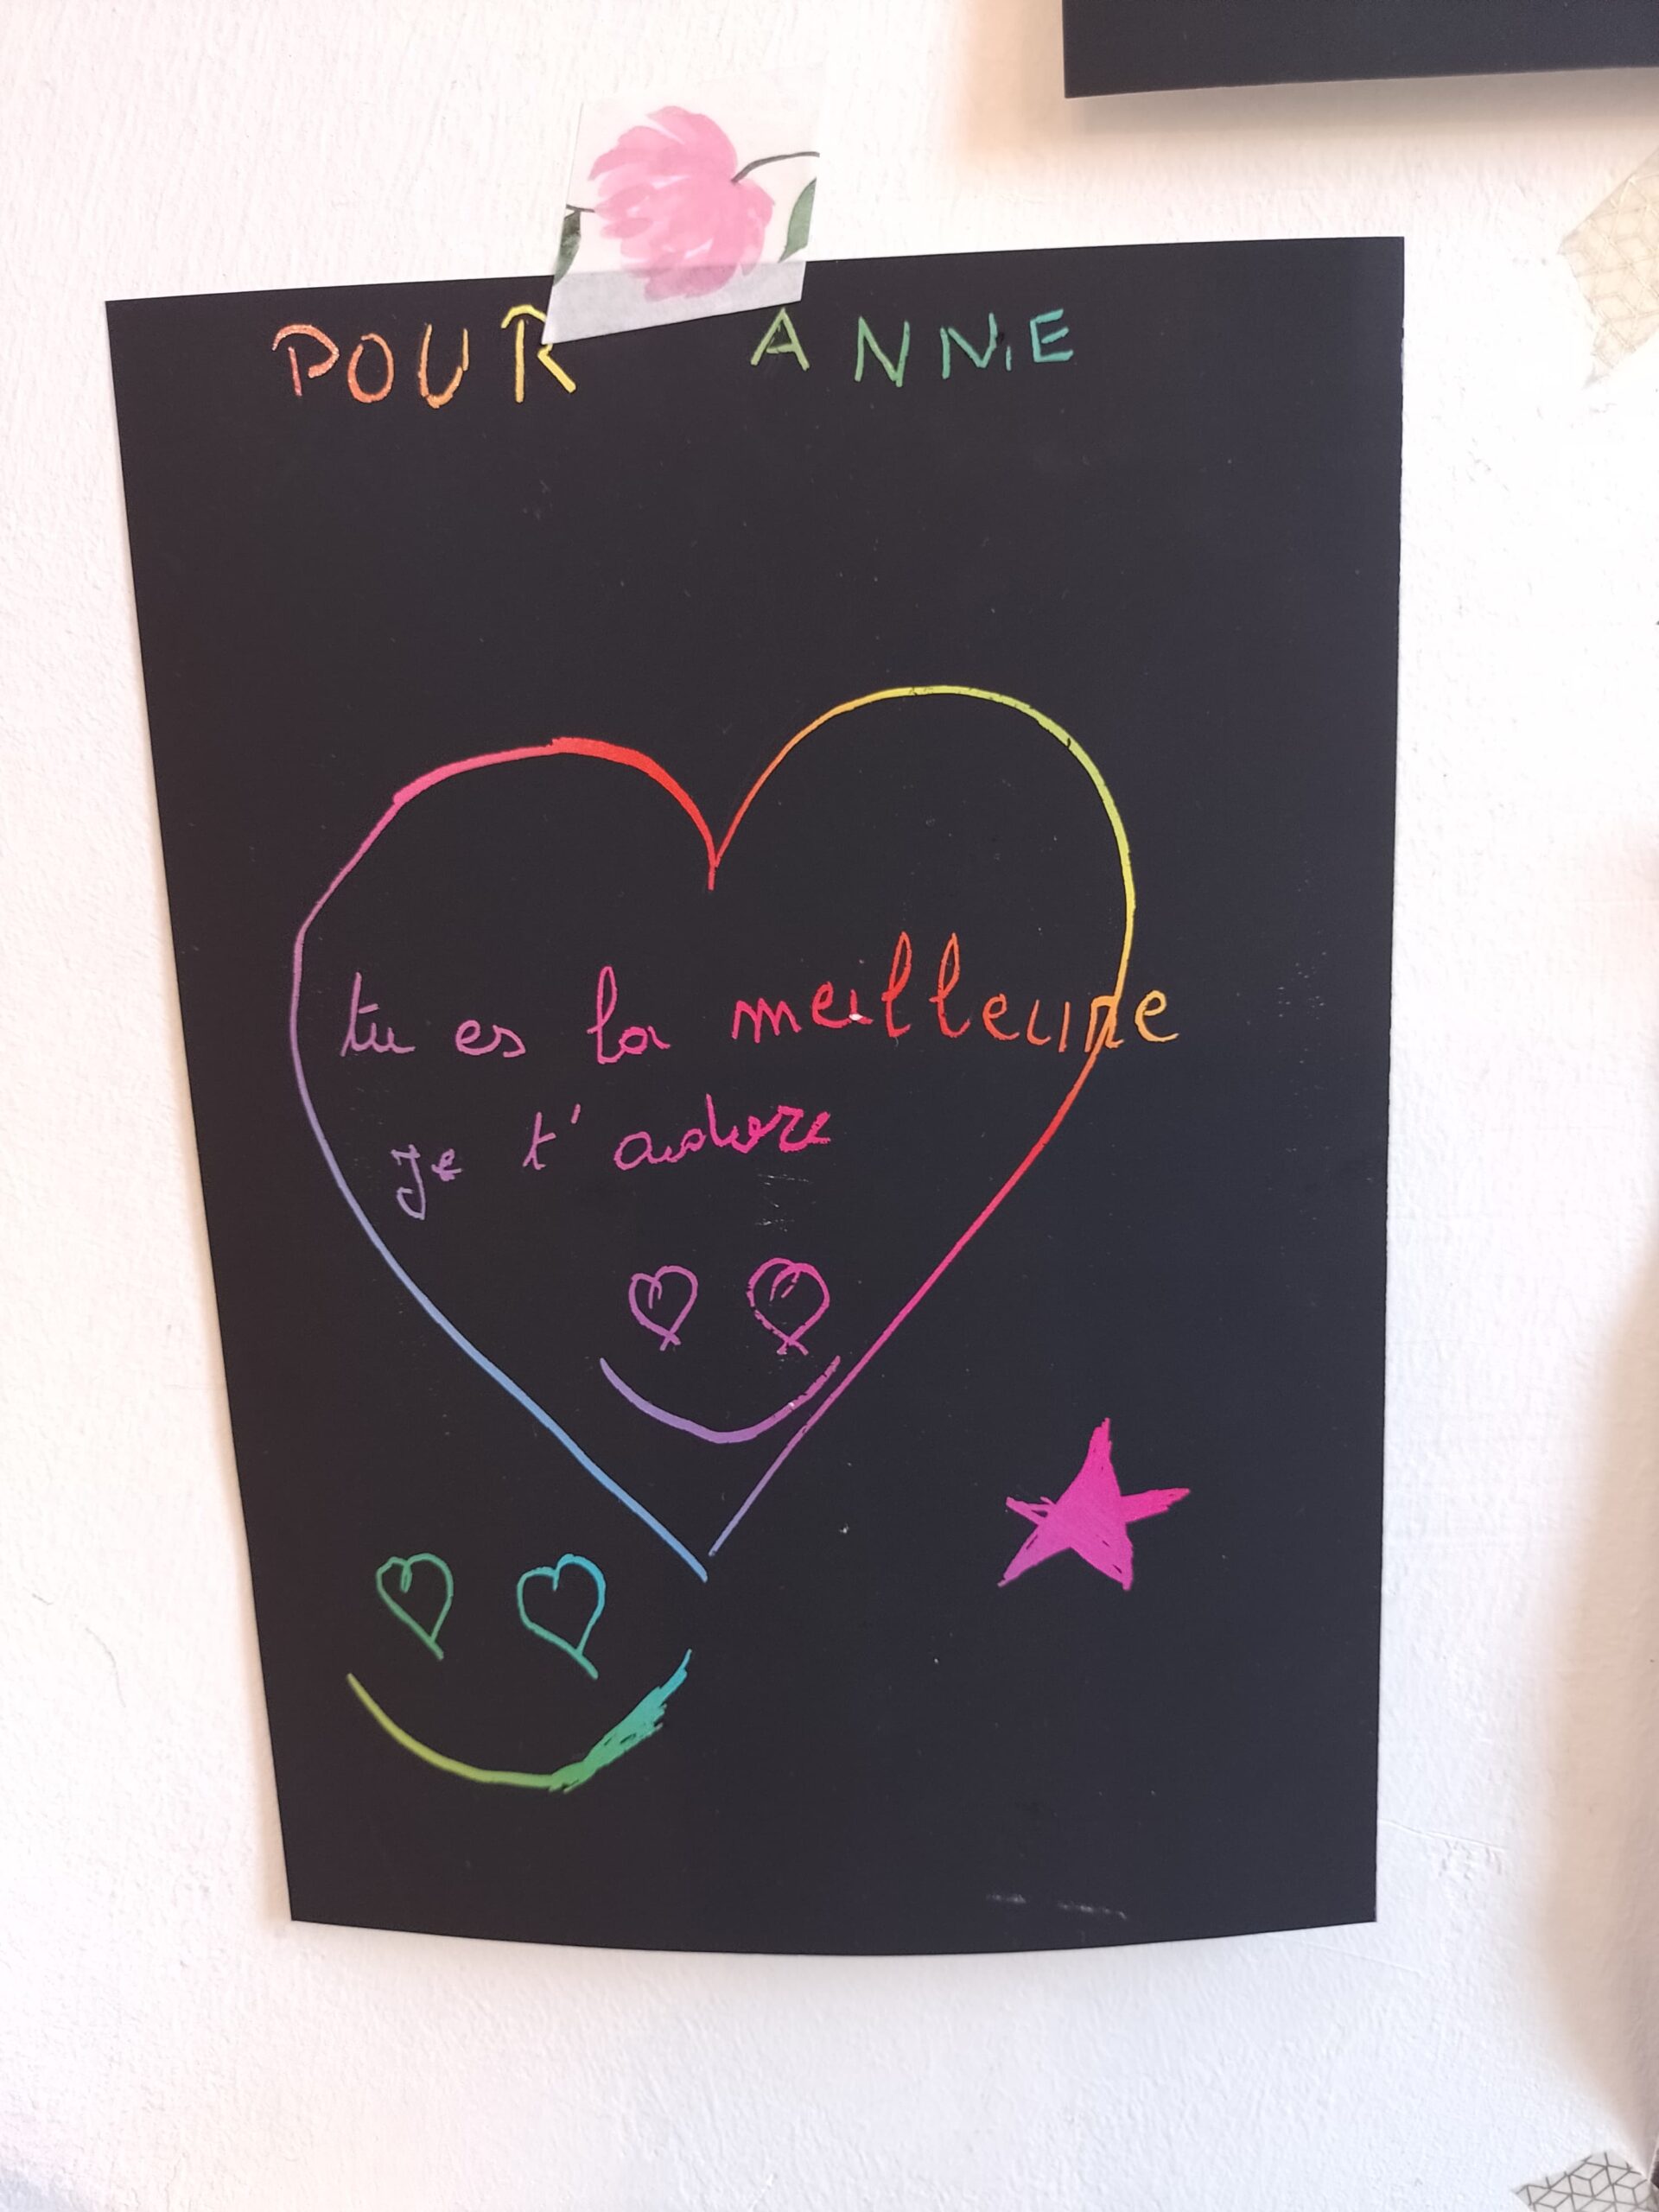 POUR ANNE
tu es la meilleure
je t'adore